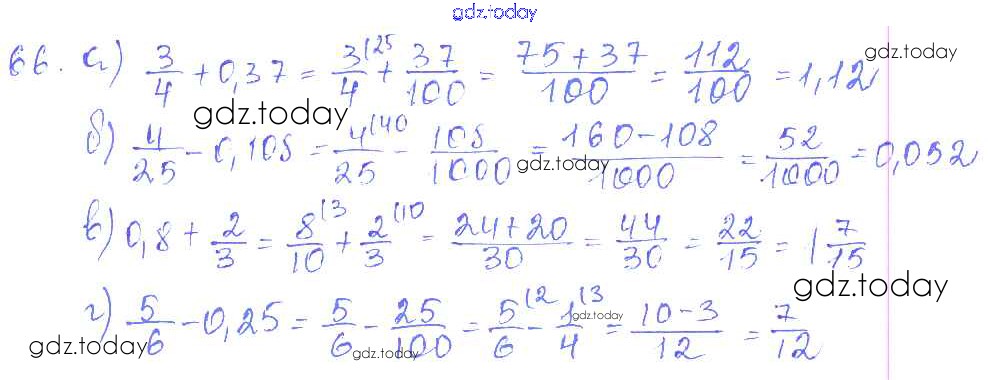 gdz.today
66. а) 3/4 + 0,37 = 3(25/4 + 37/100 = 75+37/100 = 112/100 = 1,12
gdz.today
gdz.today
б) 4/25 - 0,108 = 4(40/25 - 108/1000 = 160-108/1000 = 52/1000 = 0,052
gdz.today
в) 0,8 + 2/3 = 8(3/10 + 2(10/3 = 24+20/30 = 44/30 = 22/15 = 1 7/15
gdz.today
г) 5/6 - 0,25 = 5/6 - 25/100 = 5(2/6 - 1(3/4 = 10-3/12 = 7/12
gdz.today
gdz.today
gdz.today